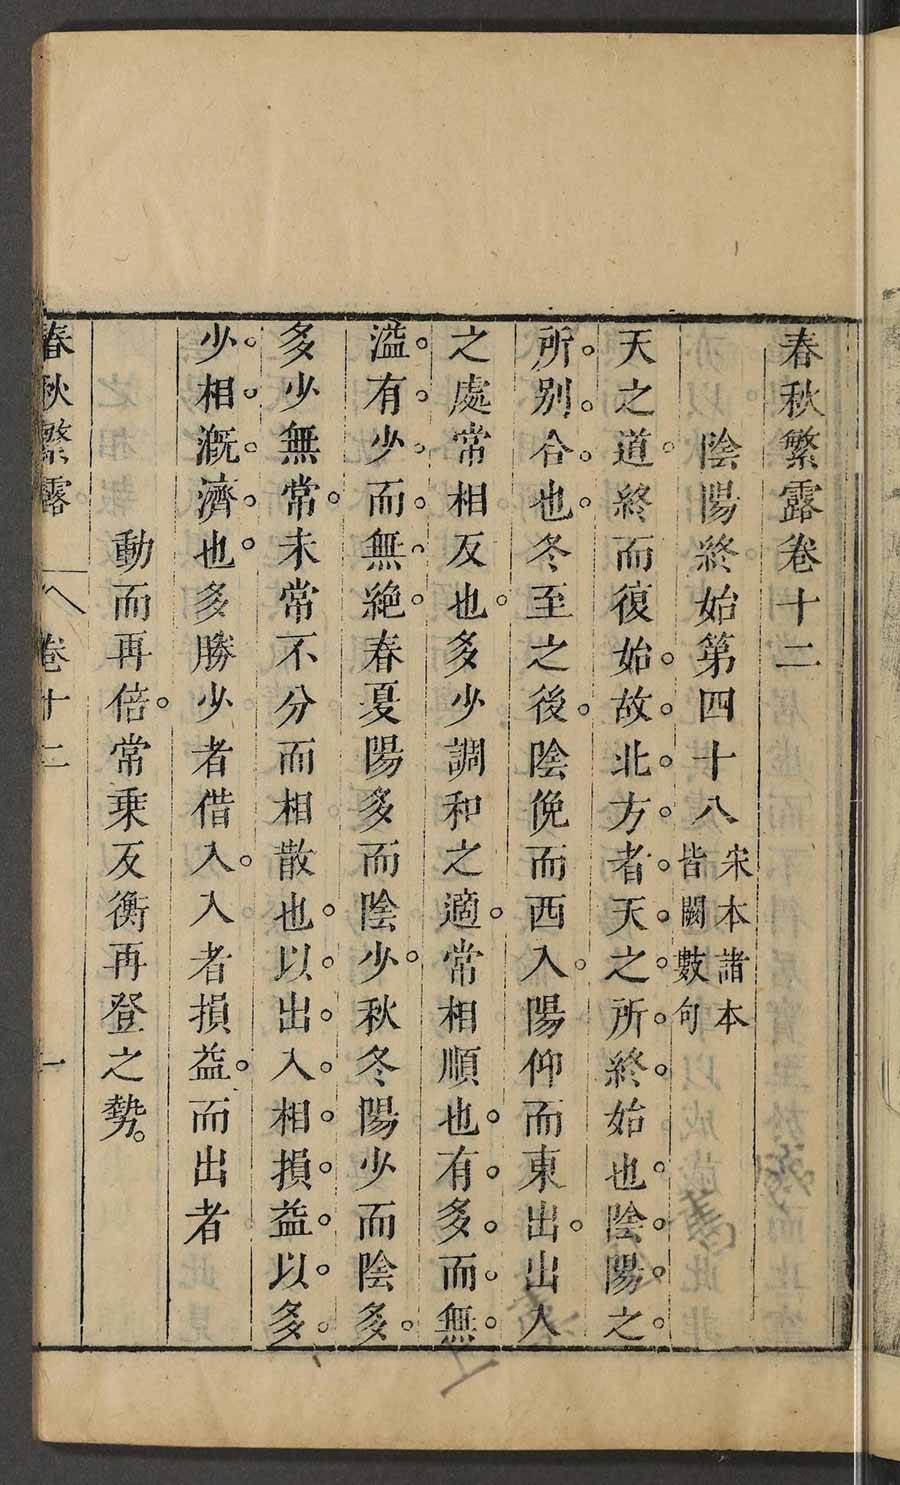 春秋繁露卷十二
陰陽終始第四十八 宋本諸本皆闕數句
天之道。終而復始。故。北。方。者。天。之。所。終。始也。陰。陽。之。
所。別。合。也。冬至之後。陰俛而西入。陽仰而東出。出入
之處常相反也。多少調和之適。常相順也。有。多。而。無。
溢。有。少。而。無。絶。春夏陽多而陰少。秋冬陽少而陰多。
多少無常。未常不分而相散也。以。出。入。相。損。益。以。多。
少。相。漑。濟。也。多勝少者借入。入者損益。而出者
動而再倍。常乗反衡再登之勢。
春秋繁露 卷十二 一